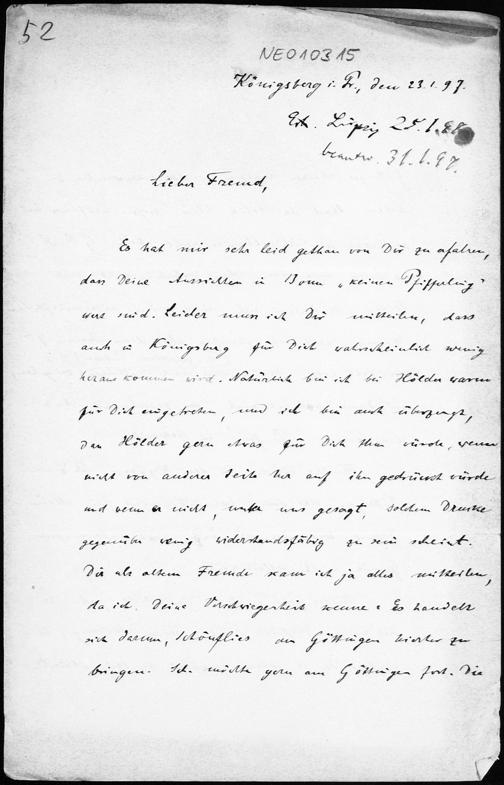 52
NE010315
Königsberg i. Pr., den 23.1.97.
Erh. Leipzig 25.1.97
beantw. 31.1.97.
Lieber Freund,
Es hat mir sehr leid gethan von Dir zu erfahren,
dass Deine Aussichten in Bonn „keinen Pfifferling"
wert sind. Leider muss ich Dir mitteilen, dass
auch in Königsberg für Dich wahrscheinlich wenig
herauskommen wird. Natürlich bin ich bei Hölder warm
für Dich eingetreten, und ich bin auch überzeugt,
dass Hölder gern etwas für Dich thun würde, wenn
nicht von anderer Seite her auf ihn gedrückt würde
und wenn er nicht, unter uns gesagt, solchem Drucke
gegenüber wenig widerstandsfähig zu sein scheint.
Dir als altem Freunde kann ich ja alles mitteilen,
da ich Deine Verschwiegenheit kenne: Es handelt
sich darum, Schönflies aus Göttingen hierher zu
bringen. Sch. möchte gern aus Göttingen fort. Die